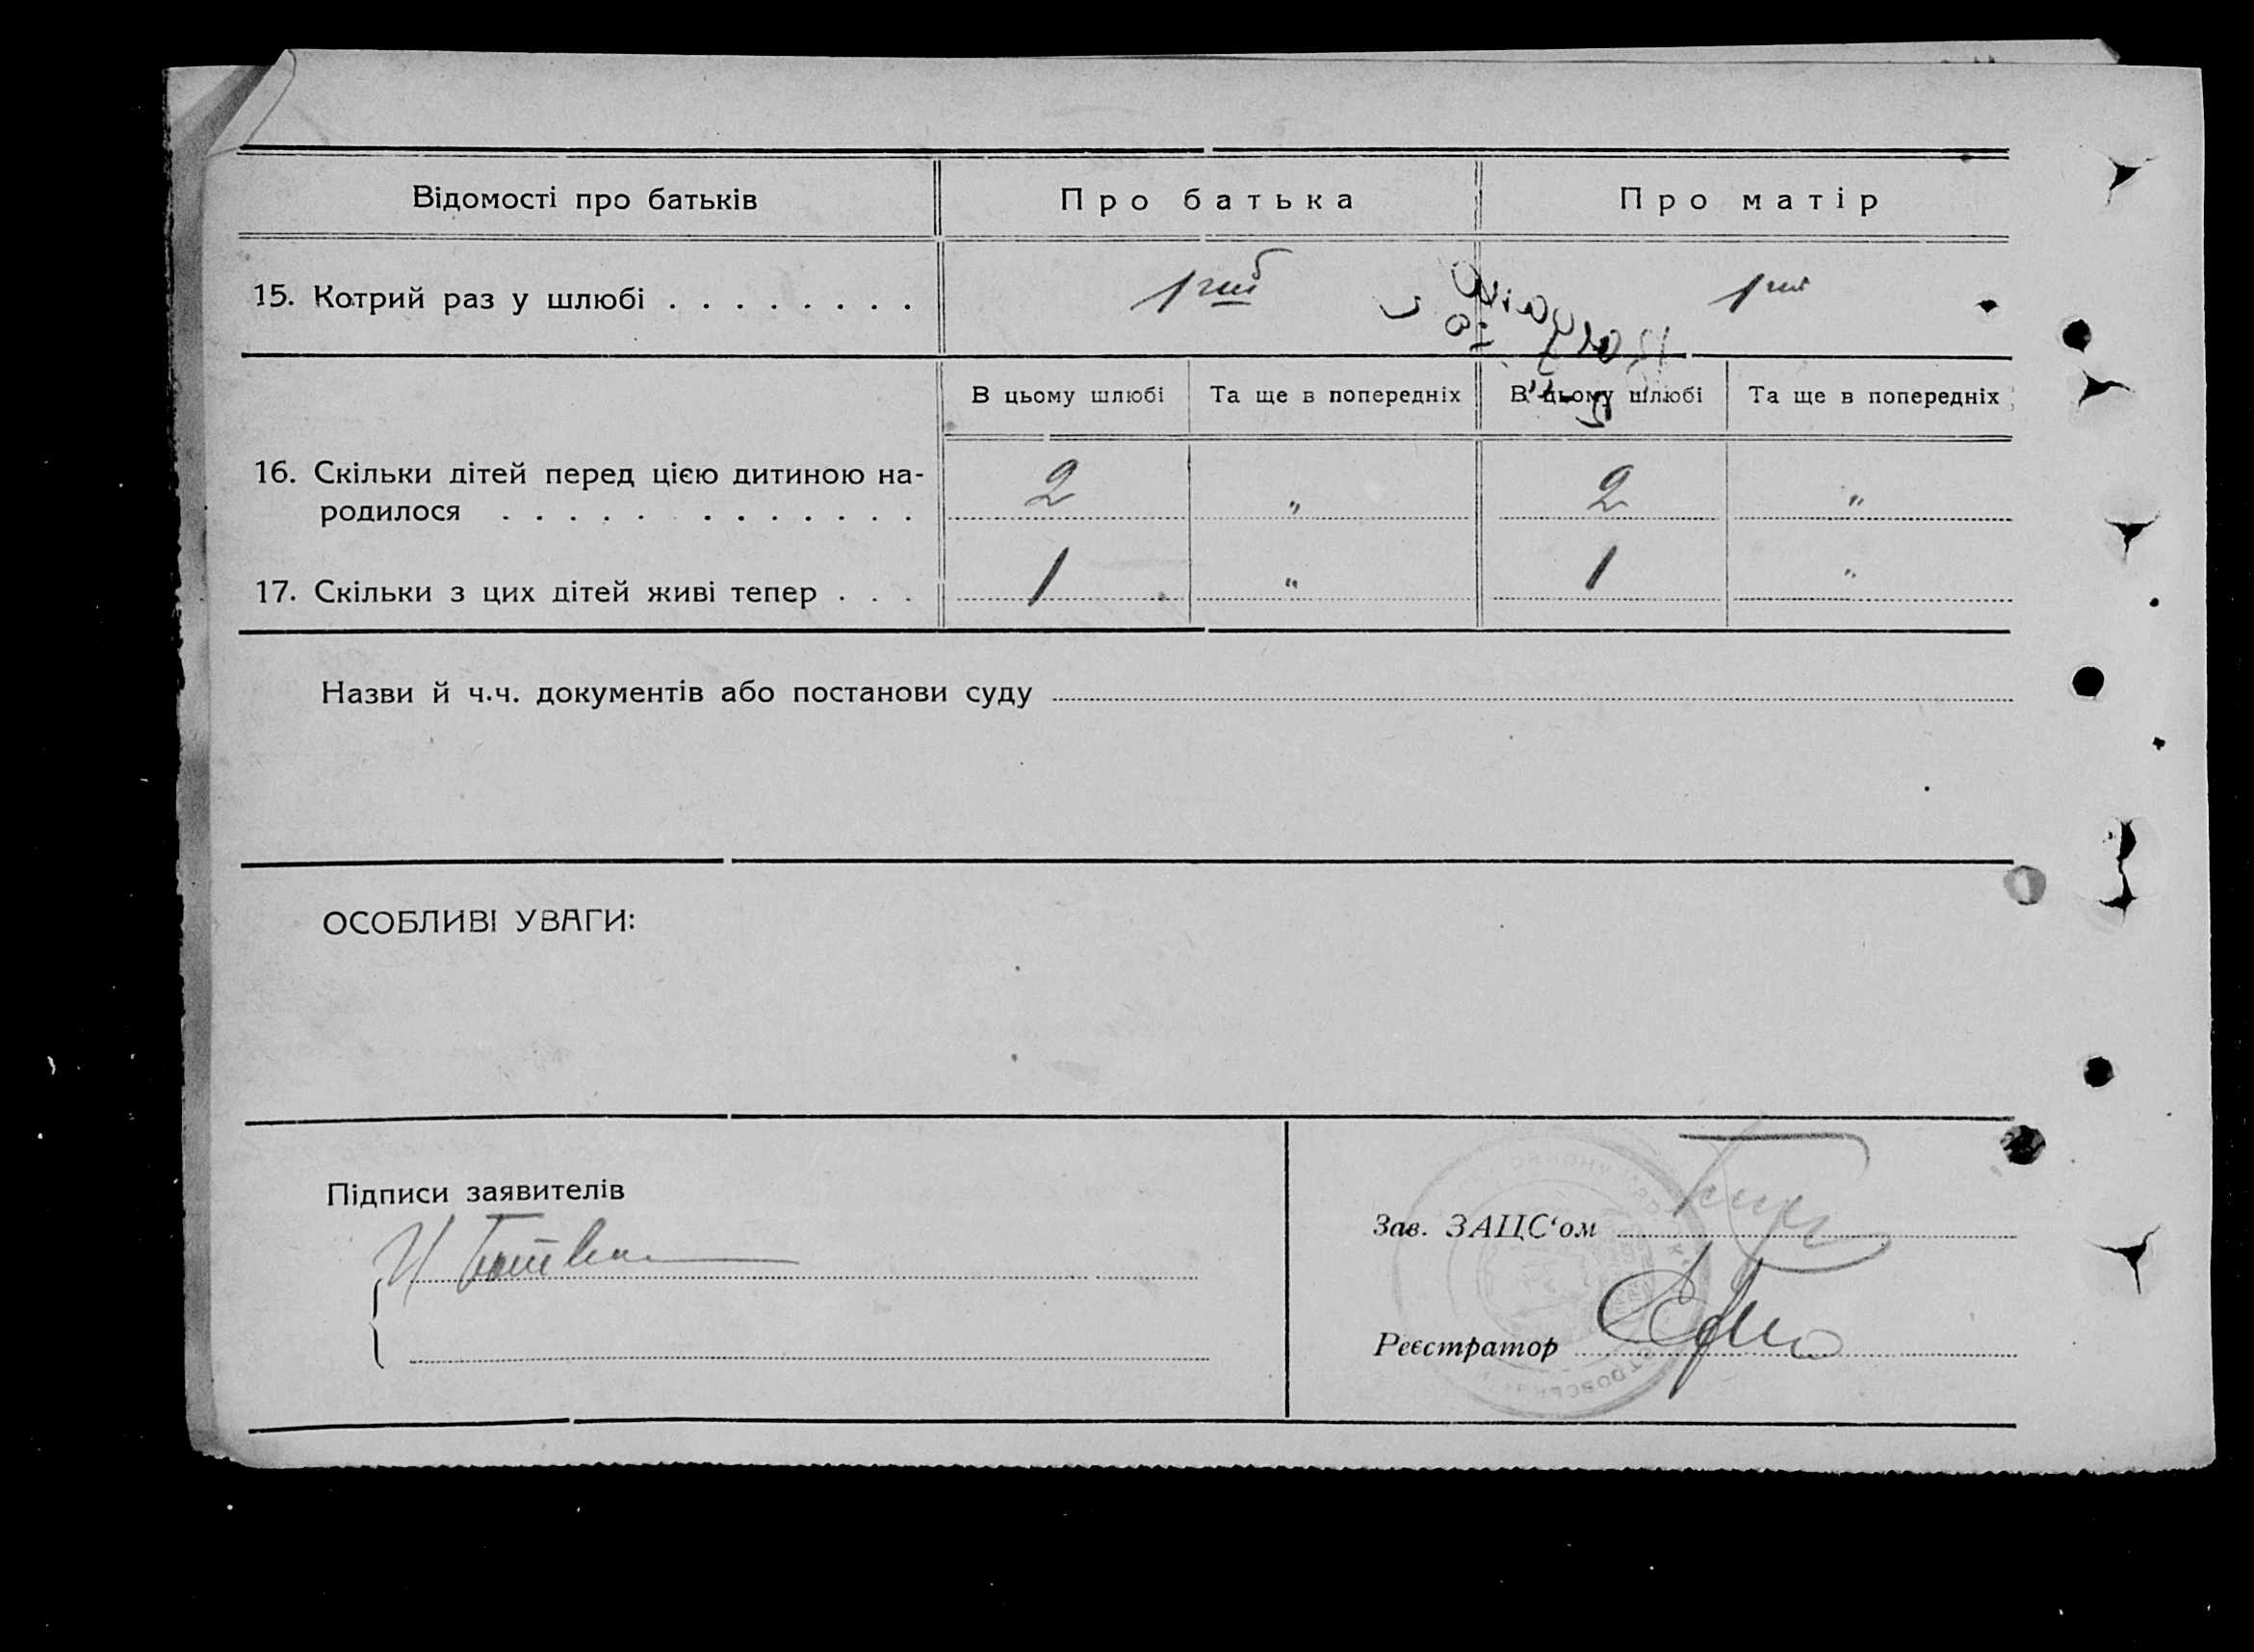 Відомості про батьків
Про батька
Про матір
15. Котрий раз у шлюбі . . . . . . . .
1
1
В цьому шлюбі
Та ще в попередніх
В цьому шлюбі
Та ще в попередніх
16. Скільки дітей перед цією дитиною на-
родилося . . . . . . . . . . . .
2
"
2
"
17. Скільки з цих дітей живі тепер . . .
1
"
1
"
Назви й ч.ч. документів або постанови суду
ОСОБЛИВІ УВАГИ:
Підписи заявителів
Зав. ЗАЦС‘ом
Реєстратор